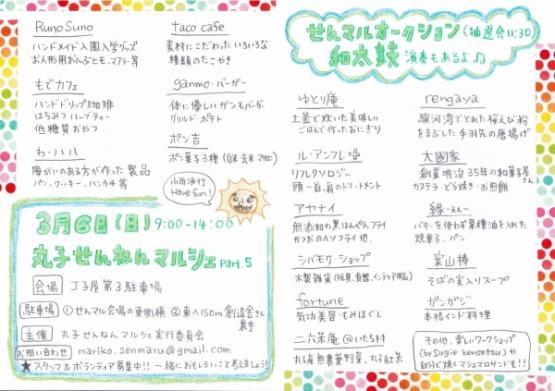 Runo Suno
ハンドメイド入園入学グッズ
お人形用おんぶヒモ、マフラー等
もでカフェ
ハンドドリップ珈琲
はちみつハーブティー
低糖質おやつ
わ・ハハハ
障がいのある方が作った製品
パン、クッキー、ハンカチ等
taco cafe
素材にこだわったいろいろな
種類のたこやき
ganmo・バーガー
体に優しいガンモバーガー
グリルド・ポテト
ポン吉
ポン菓子3種(白米 玄米
小雨決行
Have fun!
3月6日(日) 9:00-14:00
丸子せんねんマルシェ Part.5
会場 丁子屋第3駐車場
駐車場 ①せんマル会場の東側横 ②東へ150m 創造舎さん
裏手
主催 丸子せんねんマルシェ実行委員会
お問い合わせ mariko.senmaru@gmail.com
★スタッフ&ボランティア募集中!! 一緒におもしろいこと考えましょう!
せんマルオークション(抽選会11:30)
和太鼓 演奏もあるよ♪
ゆとり庵
土釜で炊いた美味しい
ごはんで作ったおにぎり
ル・アンフレ唱
リフレクソロジー
頭・首・肩のトリートメント
アヤナイ
無添加の黒はんぺんフライ
かつおのソフフライ 他
シバモク・ショップ
木製雑貨(玩具、食器、インテリア用品)
fortune
気功美容・もみほぐし
二六茶庵@いたち村
丸子産無農薬野菜、丸子紅茶
rengaya
駿河湾でとれた桜えび粉
をまぶした手羽先の唐揚げ
大國家
創業明治35年の和菓子屋さん
カステラ・どら焼き・お煎餅
縁-えん-
バターを使わず菜種油を入れた
焼菓子、パン
宗山椿
そばの実入りスープ
ガンガジ
本格インド料理
その他、楽しいワークショップ
(by Sugie kensetsu) や
自分で焼くマシュマロサンドも!!